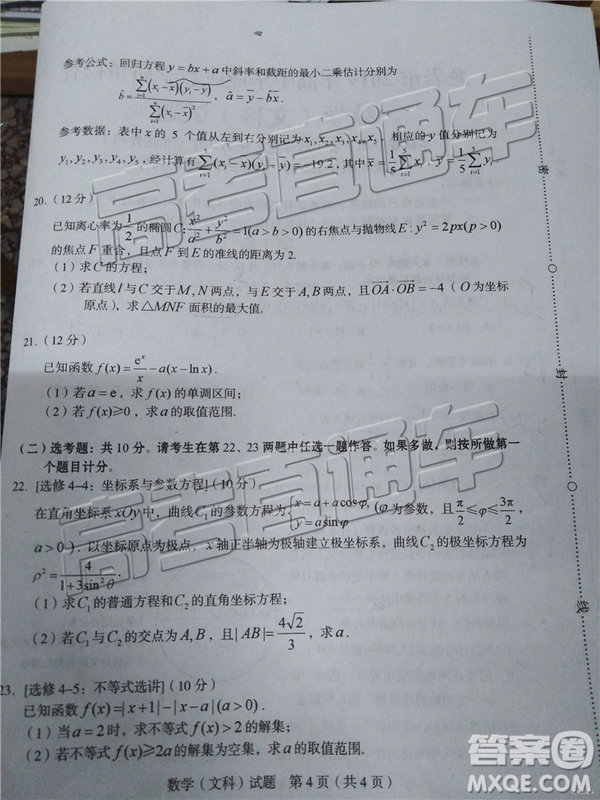 参考公式：回归方程 y=bx+a 中斜率和截距的最小二乘估计分别为
b̂=∑ᵢ₌₁ⁿ(xᵢ-x̄)(yᵢ-ȳ)/∑ᵢ₌₁ⁿ(xᵢ-x̄)², â=ȳ-b̂x̄.
参考数据：表中 x 的 5 个值从左到右分别记为 x₁,x₂,x₃,x₄,x₅，相应的 y 值分别记为
y₁,y₂,y₃,y₄,y₅, 经计算有 ∑ᵢ₌₁⁵(xᵢ-x̄)(yᵢ-ȳ)=-19.2, 其中 x̄=1/5∑ᵢ₌₁⁵xᵢ, ȳ=1/5∑ᵢ₌₁⁵yᵢ.
20.（12 分）
已知离心率为 1/2 的椭圆 C: x²/a²+y²/b²=1(a>b>0) 的右焦点与抛物线 E: y²=2px(p>0)
的焦点 F 重合，且点 F 到 E 的准线的距离为 2.
（1）求 C 的方程；
（2）若直线 l 与 C 交于 M,N 两点，与 E 交于 A,B 两点，且 OA·OB=-4（O 为坐标
原点），求 △MNF 面积的最大值.
21.（12 分）
已知函数 f(x)=eˣ/x-a(x-ln x).
（1）若 a=e，求 f(x) 的单调区间；
（2）若 f(x)≥0，求 a 的取值范围.
（二）选考题：共 10 分。请考生在第 22、23 两题中任选一题作答。如果多做，则按所做第一
个题目计分。
22. [选修 4-4：坐标系与参数方程]（10 分）
在直角坐标系 xOy 中，曲线 C₁ 的参数方程为 {x=a+acosφ, y=asinφ （φ 为参数，且 π/2≤φ≤3π/2，
a>0），以坐标原点为极点，x 轴正半轴为极轴建立极坐标系，曲线 C₂ 的极坐标方程为
ρ²=4/(1+3sin²θ).
（1）求 C₁ 的普通方程和 C₂ 的直角坐标方程；
（2）若 C₁ 与 C₂ 的交点为 A,B，且 |AB|=4√2/3，求 a.
23. [选修 4-5：不等式选讲]（10 分）
已知函数 f(x)=|x+1|-|x-a|(a>0).
（1）当 a=2 时，求不等式 f(x)>2 的解集；
（2）若不等式 f(x)≥2a 的解集为空集，求 a 的取值范围.
数学（文科）试题 第 4 页（共 4 页）
密
封
线
高考直通车
高考直通车
高考直通车
答案圈
MXQE.COM